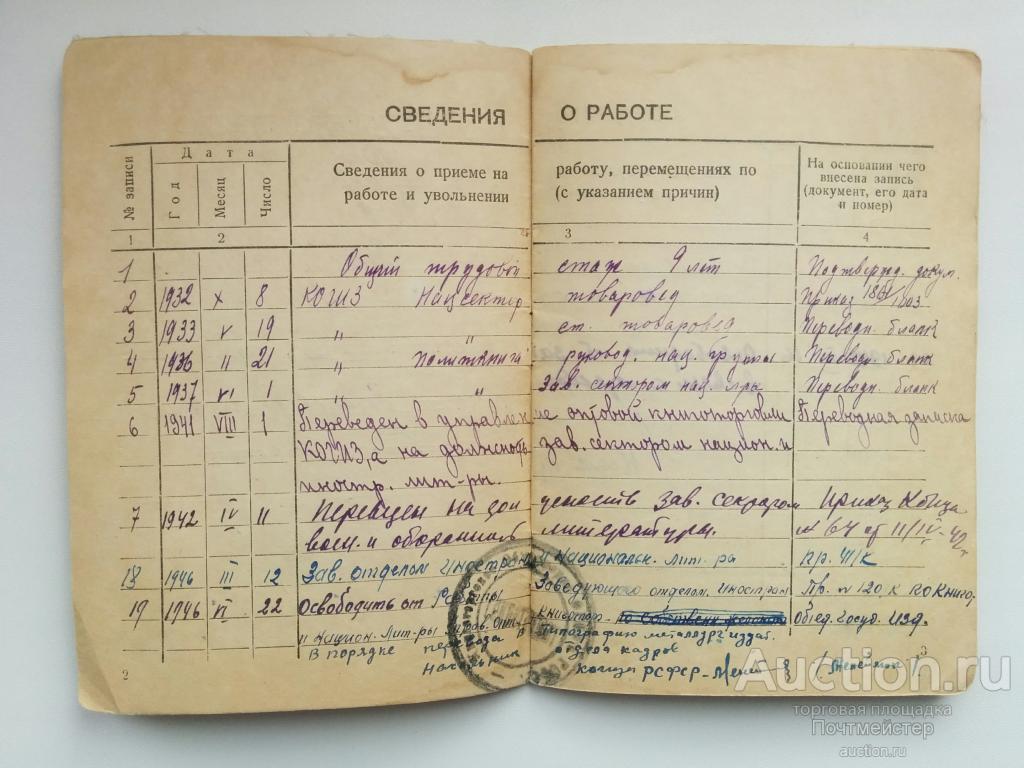 СВЕДЕНИЯ О РАБОТЕ
№ записи
Дата
Год
Месяц
Число
Сведения о приеме на работу, перемещениях по
работе и увольнении (с указанием причин)
На основании чего
внесена запись
(документ, его дата
и номер)
1 2 3 4
1 Общий трудовой стаж 9 лет Подтвержд. докум.
2 1932 X 8 КОГИЗ Нацсектор товаровед Приказ
3 1933 V 19 " ст. товаровед Переводн. бланк
4 1936 II 21 " Политкнига руковод. нац. группы Переводн. бланк
5 1937 VI 1 " " Зав. сектором нац. л-ры Переводн. бланк
6 1941 VIII 1 Переведен в управление оптовой книготорговли Переводная записка
КОГИЗ,а на должность зав. сектором национ. и
иностр. лит-ры.
7 1942 IV 11 на должность зав. сектором Приказ Когиза
воен. и оборонной литературы. № 64 от 11/IV-42г
18 1946 III 12 Зав. отделом Иностран. и Национальн. лит-ры Пр.
19 1946 VI 22 Освободить от Заведующего отделом. Иностран Пр. № 120
и Национ. Лит-ры Управ. Опт. Книготор. Об'ед. Госуд. Изд.
в порядке перевода в типографию металлургиздат.
Начальник отдела кадров
Когиза РСФСР
2
3
Auction.ru
торговая площадка
Почтмейстер
auction.ru